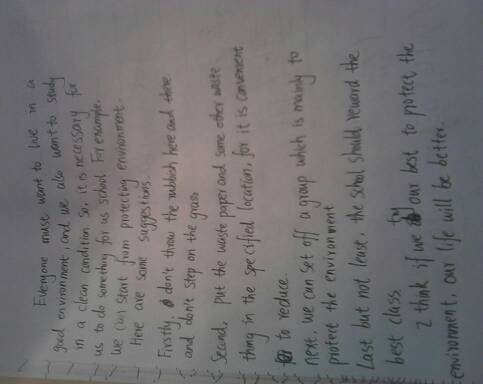 Everyone muse want to live in a
good environment, and we also want to study
in a clean condition. So, it is necessary for
us to do something for us school. For example.
We can start from protecting environment.
Here are some suggestions.
Firstly, don't throw the rubbish here and there
and don't step on the grass
Second, put the waste paper and some other waste
thing in the specified location, for it is convenient
to reduce.
next, we can set off a group which is mainly to
protect the environment
Last but not lease, the school should reward the
best class
I think if we try our best to protect the
environment, our life will be better.